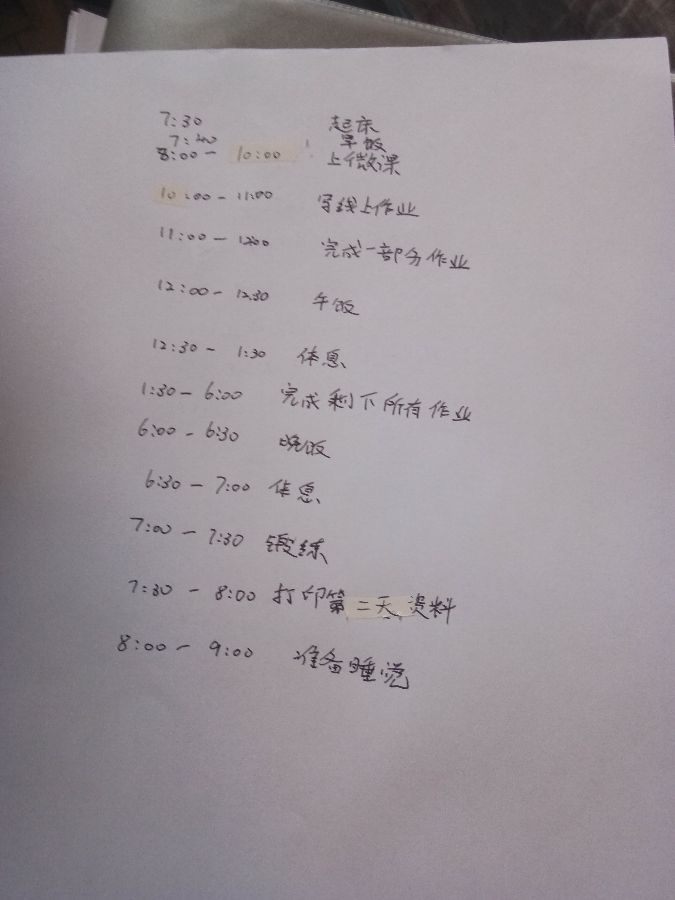 7:30 起床
7:40 早饭
8:00 - 10:00 上微课
10:00 - 11:00 写线上作业
11:00 - 12:00 完成一部分作业
12:00 - 12:30 午饭
12:30 - 1:30 休息
1:30 - 6:00 完成剩下所有作业
6:00 - 6:30 晚饭
6:30 - 7:00 休息
7:00 - 7:30 锻练
7:30 - 8:00 打印第二天资料
8:00 - 9:00 准备睡觉